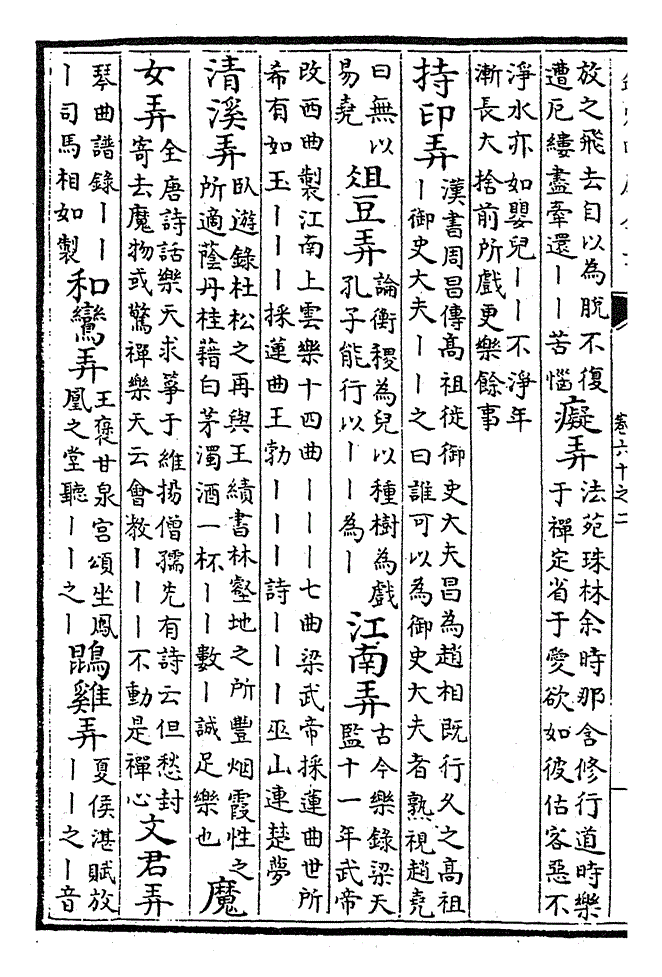 放之飛去自以為脫不復
遭厄縷盡牽還丨丨苦惱
癡弄
法苑珠林余時那含修行道時樂
于禪定省于愛欲如彼估客惡不
淨水亦如嬰兒丨丨不淨年
漸長大捨前所戲更樂餘事
持印弄
漢書周昌傳高祖徙御史大夫昌為趙相既行久之高祖
丨御史大夫丨丨之曰誰可以為御史大夫者熟視趙堯
曰無以
易堯
俎豆弄
論衡稷為兒以種樹為戲
孔子能行以丨丨為丨
江南弄
古今樂錄梁天
監十一年武帝
改西曲製江南上雲樂十四曲丨丨丨七曲梁武帝採蓮曲世所
希有如玉丨丨丨採蓮曲王勃丨丨丨詩丨丨丨巫山連楚夢
清溪弄
臥遊錄杜松之再與王績書林壑地之所豐烟霞性之
所適蔭丹桂藉白茅濁酒一杯丨丨數丨誠足樂也
魔
女弄
全唐詩話樂天求箏于維揚僧孺先有詩云但愁封
寄去魔物或驚禪樂天云會教丨丨丨不動是禪心
文君弄
琴曲譜錄丨丨
丨司馬相如製
和鸞弄
王褒甘泉宮頌坐鳳
凰之堂聽丨丨之丨
鵾雞弄
夏侯湛賦放
丨丨之丨音
卷六十之二
一